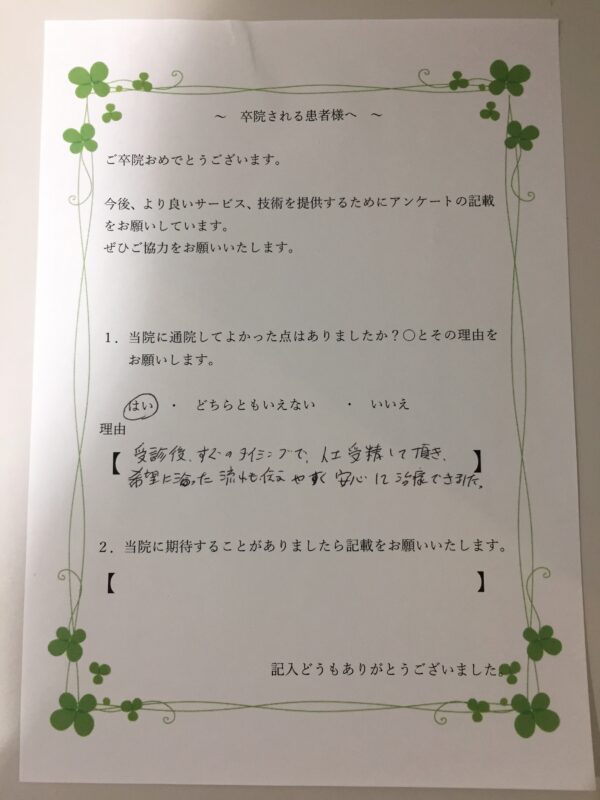 ～　卒院される患者様へ　～
ご卒院おめでとうございます。
今後、より良いサービス、技術を提供するためにアンケートの記載
をお願いしています。
ぜひご協力をお願いいたします。
1．当院に通院してよかった点はありましたか？○とその理由を
お願いします。
はい　・　どちらともいえない　　・　いいえ
理由
【受診後、すぐのタイミングで、人工受精して頂き、】
希望に沿った流れも伝えやすく安心して治療できました。
2．当院に期待することがありましたら記載をお願いいたします。
【　　　】
記入どうもありがとうございました。